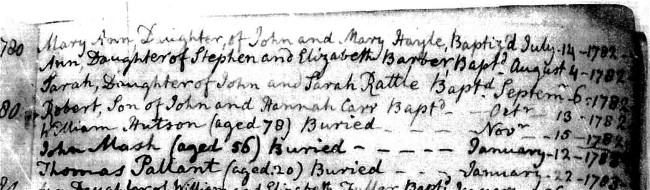 1780 Mary Ann, Daughter, of John and Mary Hayle, Baptiz'd July-14-1782
Ann, Daughter of Stephen and Elizabeth Barber Bapt.d August 4-1782
Sarah, Daughter of John and Sarah Rattle Bapt.d Septem.r 6-1782
80 Robert, Son of John and Hannah Carr Bapt.d - Oct.r 13-1782
William Hutson (aged 78) Buried - - - - Nov.r - 15-1782
John Mash (aged 56) Buried - - - - - January-12-1783
Thomas Pallant (aged 20) Buried - - January-22-1783
Daughter of William and Elizabeth Fuller Bapt.